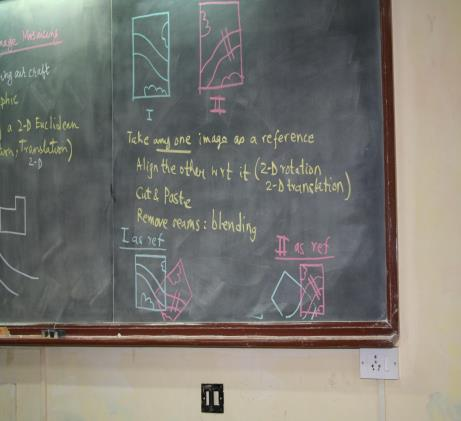 Image Mosaicing
ing art craft
phic
a 2-D Euclidean
Translation)
2-D
I
II
Take any one image as a reference
Align the other wrt it (2-D rotation
2-D translation)
Cut & Paste
Remove seams: blending
I as ref
II as ref